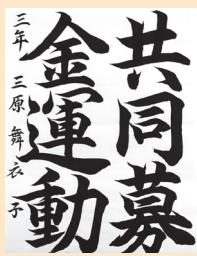 共同募
金運動
三年 三原 舞衣子